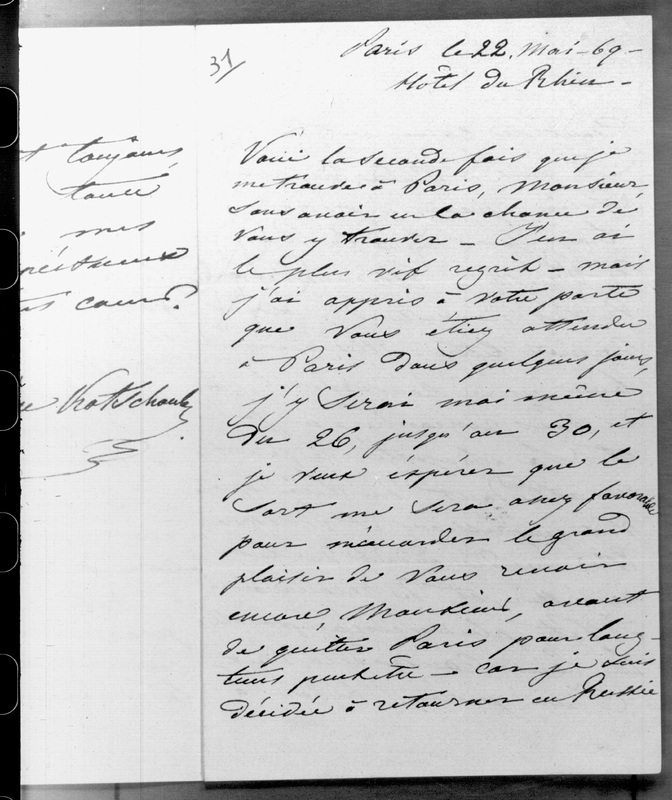 t toujours,
toute
mes
cœur?
Kotschoubey
31/
Paris le 22. Mai - 69 -
Hôtel du Rhin -
Voici la seconde fois que je
me trouve à Paris, Monsieur,
sans avoir eu la chance de
vous y trouver - J'en ai
le plus vif regret - mais
j'ai appris à votre porte
que vous étiez attendu
à Paris dans quelques jours,
j'y serai moi même
du 26, jusqu'au 30, et
je veux espérer que le
sort me sera assez favorable
pour m'accorder le grand
plaisir de vous revoir
encore, Monsieur, avant
de quitter Paris pour long-
tems peutêtre - car je suis
décidée à retourner en Russie